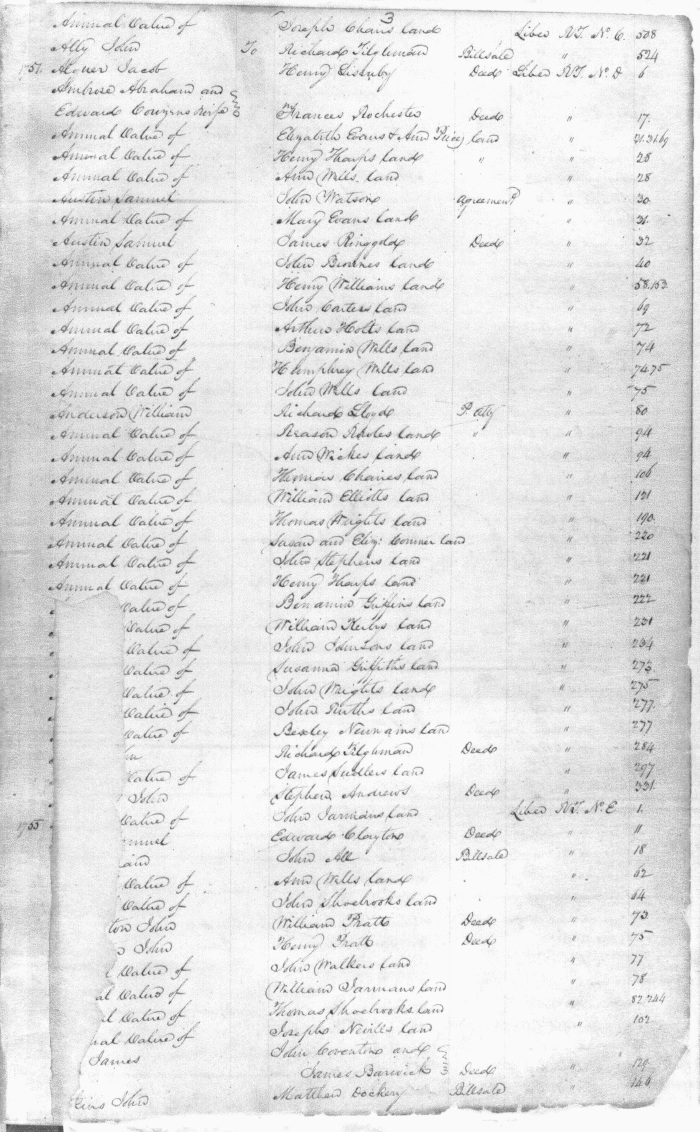 3
Annual Value of Joseph Chairs land Liber RT. No. C. 508
Atty John To Richard Tilghman Billsale " 524
1751. Agner Jacob Henry Lisenby Deed Liber RT. No D 6
Ambrose Abraham and
Edward Cowgens Wife Frances Rochester Deed " 17.
Annual Value of Elizabeth Evans & Ann Price land " 21.31.69
Annual Value of Henry Tharps land " " 25
Annual Value of Ann Wills land " 28
Austin Samuel John Watson Agreement " 30
Annual Value of Mary Evans land " 31
Austin Samuel James Ringgold Deed " 32
Annual Value of John Brownes land " 40
Annual Value of Henry Williams land " 58.153
Annual Value of John Carters land " 69
Annual Value of Arthur Holts land " 72
Annual Value of Benjamin Wills land " 74
Annual Value of Humphrey Wills land " 74.75
Annual Value of John Wills land " 75
Anderson William Richard Lloyd P Atty " 80
Annual Value of Reason Rholes land " " 94
Annual Value of Ann Wickes land " 94
Annual Value of Thomas Chaires land " 106
Annual Value of William Elliotts land " 121
Annual Value of Thomas Wrights land " 190
Annual Value of Susan and Eliz: Conner land " 220
Annual Value of John Stephens land " 221
Annual Value of Henry Tharps land " 221
Value of Benjamin Griffins land " 222
Value of William Kerbys land " 231
Value of John Johnsons land " 234
Value of Susanna Griffiths land " 273
Value of John Wrights land " 275
Value of John Ruths land " 277.
Value of Bexley Newnams land " 277
Richard Tilghman Deed " 284
Value of James Sudlers land " 297
John Stephen Andrews Deed " 331
Value of John Jarmans land Liber RT. No E 1.
1755 Edward Clayton Deed " 11
John All Billsale " 18
Value of Ann Wills land " 62
Value of John Shoebrooks land " 64
ton John William Pratt Deed " 73
John Henry Pratt Deed " 75
Value of John Walkers land " 77
al Value of William Jarmans land " 78
al Value of Thomas Shoebrooks land " 87.244
ual Value of Josephs Nevills land " 102
James John Coventon and
James Barwick Deed " 129
kins John Matthew Dockery Billsale " 146